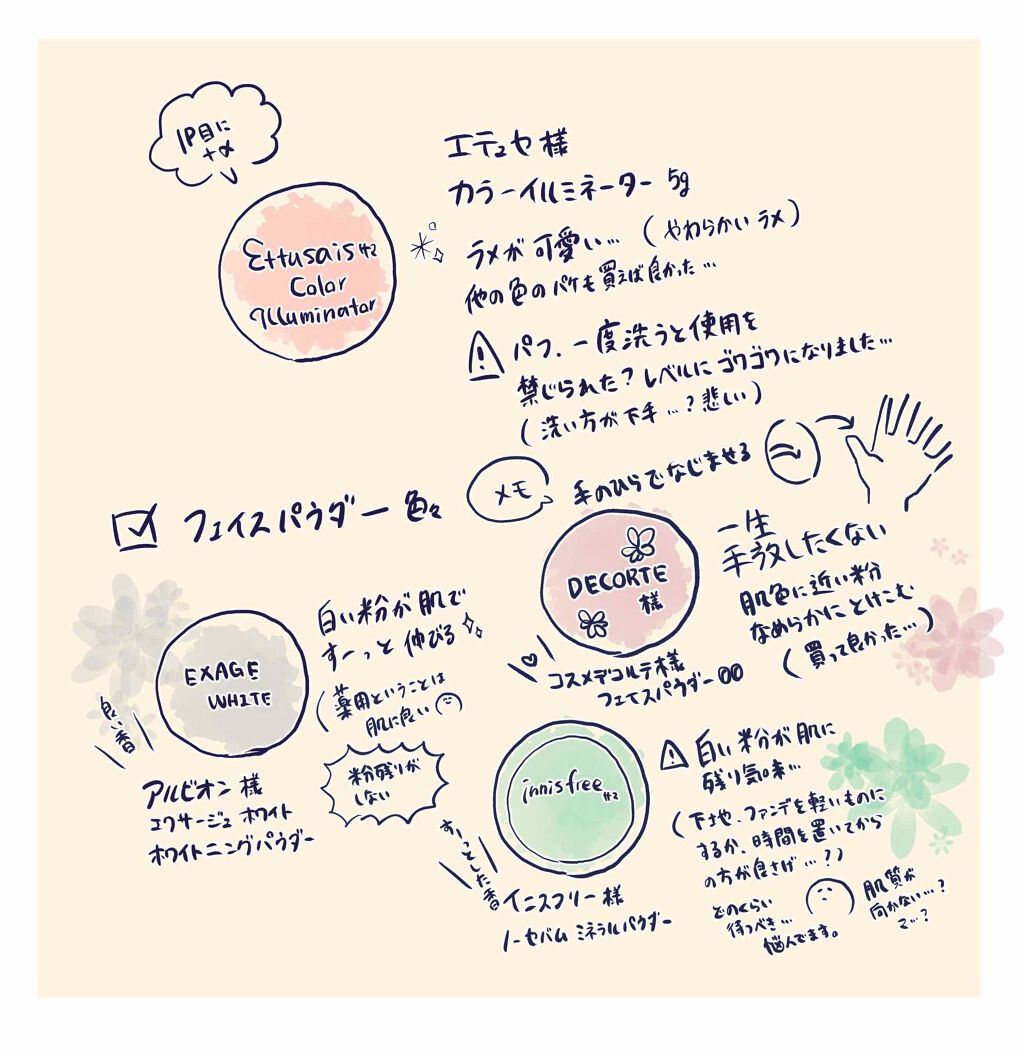 1P目に
+α
Ettusais様
Color
Illuminator
エテュセ様
カラーイルミネーター 5g
ラメが可愛い… (やわらかいラメ)
他の色のパケも買えば良かった…
パフ、一度洗うと使用を
禁じられた?レベルにゴワゴワになりました…
(洗い方が下手…?悲しい)
フェイスパウダー色々
メモ
手のひらでなじませる
EXAGE
WHITE
白い粉が肌で
すーっと伸びる
(薬用ということは
肌に良い
良い香
アルビオン様
エクサージュ ホワイト
ホワイトニングパウダー
粉残りが
しない
DECORTE
様
一生
手放したくない
肌色に近い粉
なめらかにとけこむ
(買って良かった…)
コスメデコルテ様
フェイスパウダー00
innisfree様
すーっとした香
イニスフリー様
ノーセバム ミネラルパウダー
白い粉が肌に
残り気味…
(下地、ファンデを軽いものに
するか、時間を置いてから
の方が良さげ…?)
どのくらい
待つべき…
悩んでます。
肌質が
向かない…?
て…?